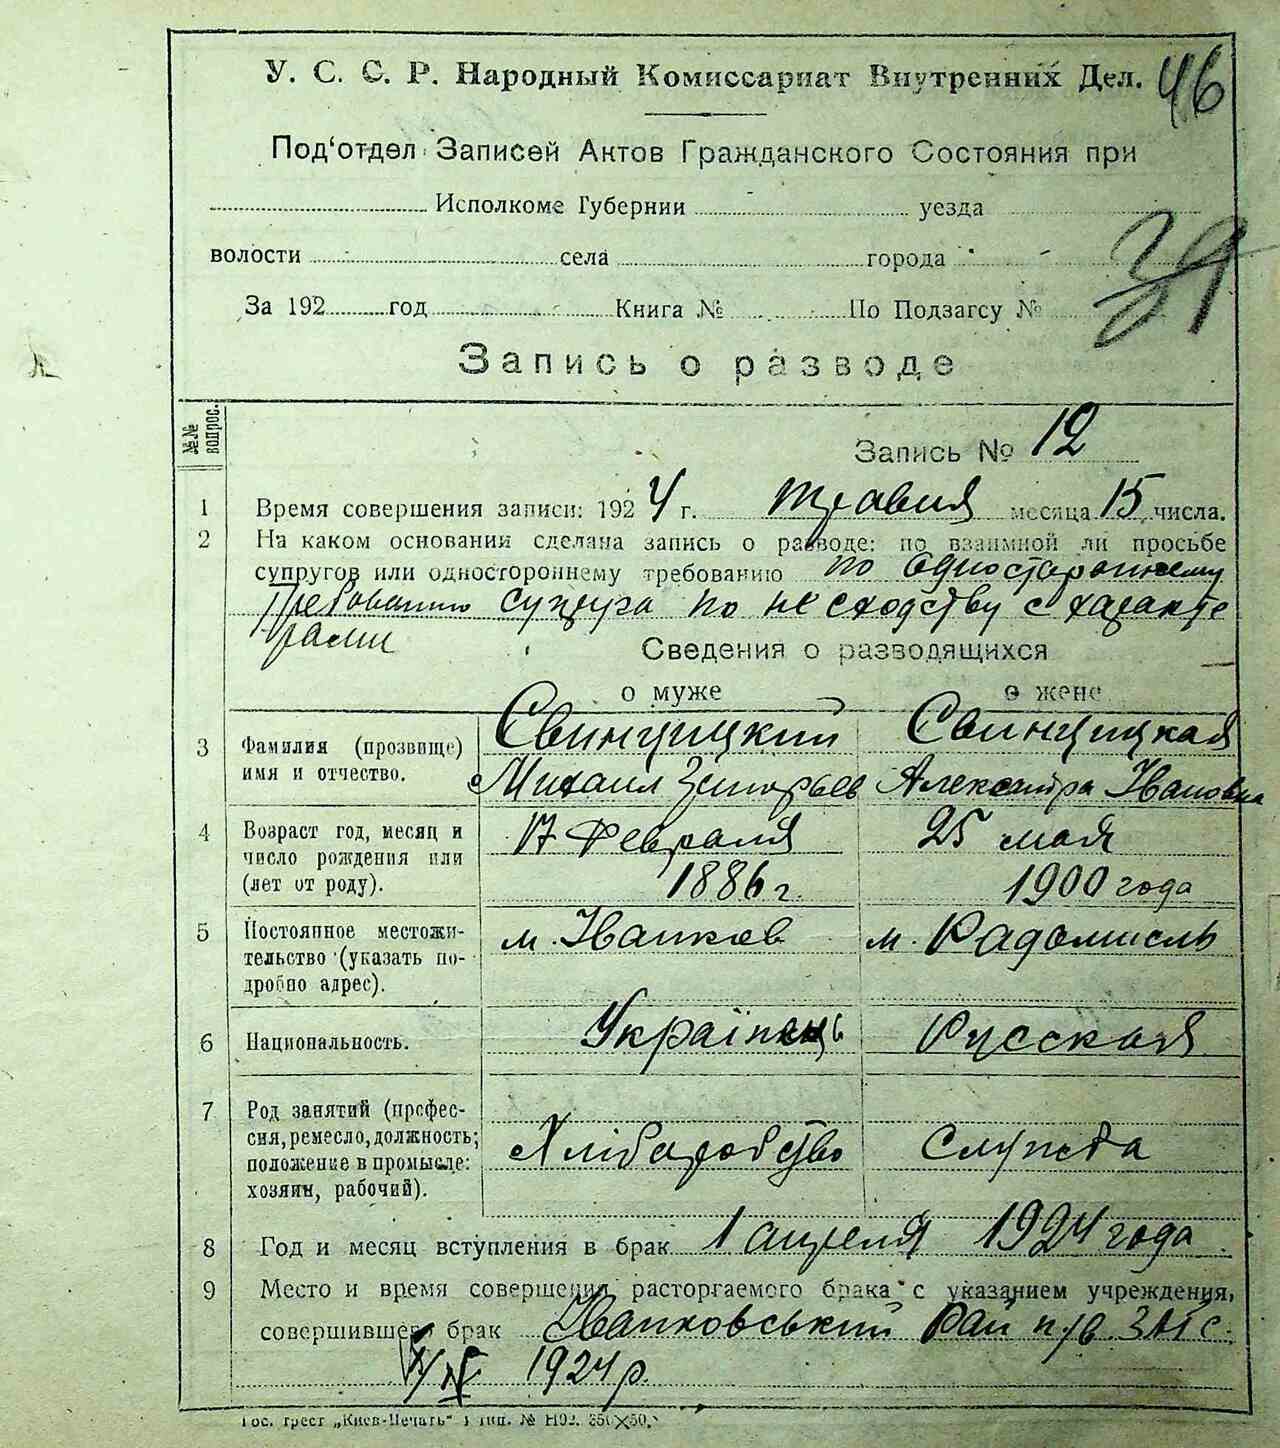 У. С. С. Р. Народный Комиссариат Внутренних Дел. 46
Под‘отдел Записей Актов Гражданского Состояния при
Исполкоме Губернии уезда
волости села города
39
За 192 год Книга № По Подзагсу №
Запись о разводе
№№ вопрос.
Запись № 12
1 Время совершения записи: 1924 г. травня месяца 15 числа.
2 На каком основании сделана запись о разводе: по взаимной ли просьбе
супругов или одностороннему требованию по одностороннему
требованию супруга по не сходству с характе
рами
Сведения о разводящихся
о муже о жене
3 Фамилия (прозвище) Свинцицкий Свинцицкая
имя и отчество. Михаил Григорьев Александра Ивановна
4 Возраст год, месяц и 17 Февраля 25 мая
число рождения или
(лет от роду). 1886 г. 1900 года
5 Постоянное местожи- м. Іванков м. Радомысль
тельство (указать по-
дробно адрес).
6 Национальность. Українець Русская
7 Род занятий (профес-
сия, ремесло, должность; Хліборобство Служба
положение в промысле:
хозяин, рабочий).
8 Год и месяц вступления в брак 1 апреля 1924 года
9 Место и время совершения расторгаемого брака с указанием учреждения,
совершившего брак Іванковський Рай п/в ЗАГС
1/IV 1924 р.
Гос. трест „Киев-Печать“ 1 тип. №